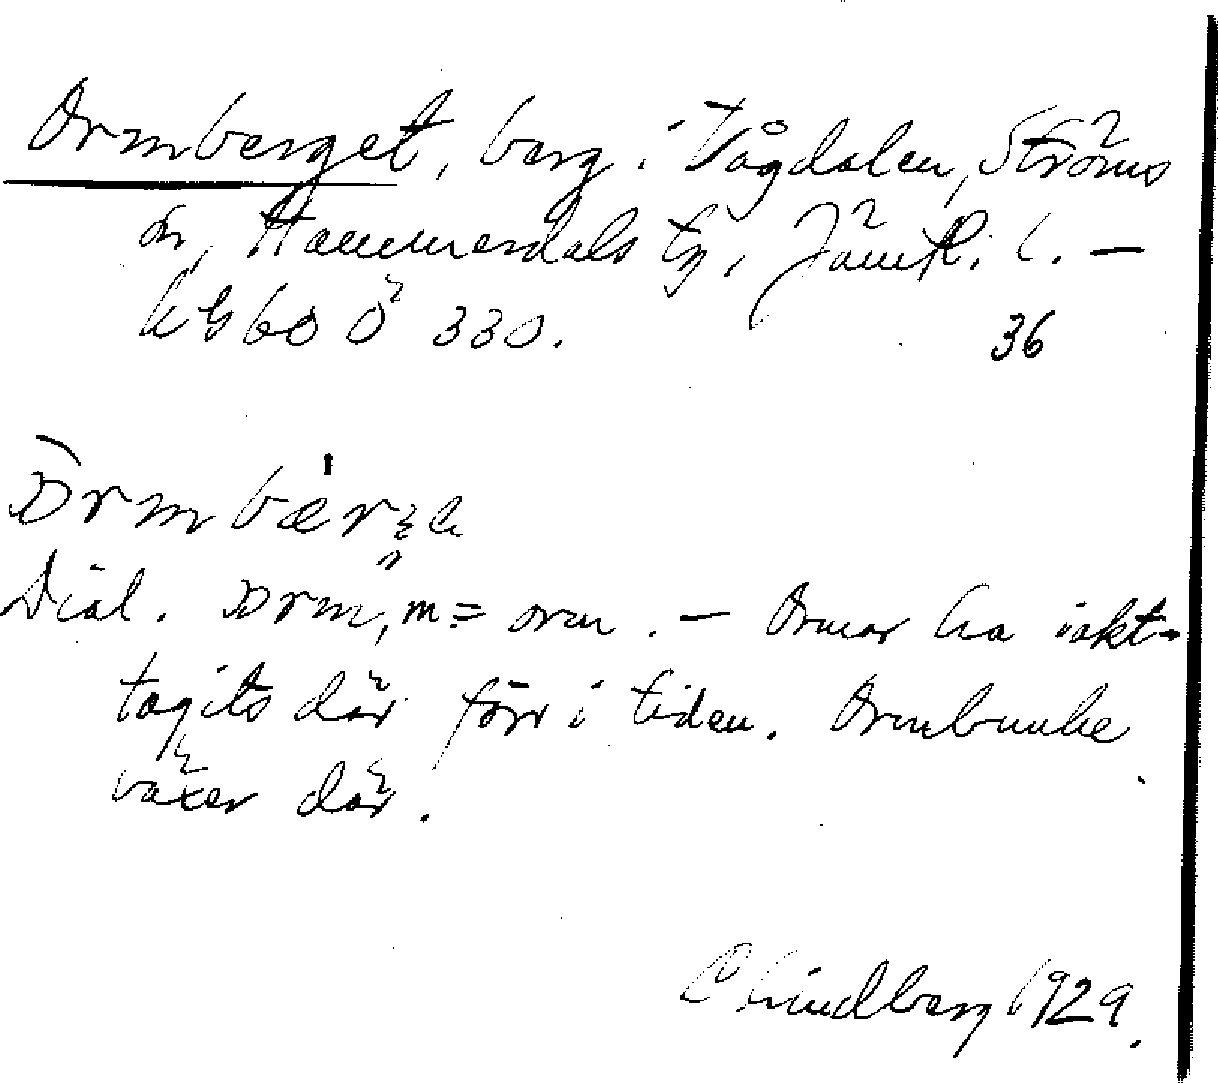 Ormberget, berg i Vågdalen, Ströms
sn, Hammerdals tg, Jämtl. l. –
kgbo Ö 330.
36
Dial. orm, m = orm. – Ormar ha iakt-
tagits där förr i tiden. Ormbunke
växer där.
C Lindberg 1929.